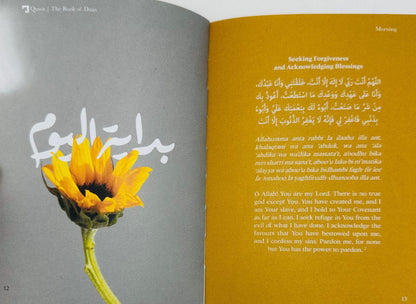 Quwa | The Book of Duas
بداية اليوم
12
Morning
Seeking Forgiveness
and Acknowledging Blessings
اللَّهُمَّ أَنْتَ رَبِّي لَا إِلَهَ إِلَّا أَنْتَ، خَلَقْتَنِي وَأَنَا عَبْدُكَ،
وَأَنَا عَلَى عَهْدِكَ وَوَعْدِكَ مَا اسْتَطَعْتُ، أَعُوذُ بِكَ
مِنْ شَرِّ مَا صَنَعْتُ، أَبُوءُ لَكَ بِنِعْمَتِكَ عَلَيَّ وَأَبُوءُ
بِذَنْبِي فَاغْفِرْ لِي فَإِنَّهُ لَا يَغْفِرُ الذُّنُوبَ إِلَّا أَنْتَ
Allahumma anta rabbi la ilaaha illa ant,
khalaqtani wa ana 'abduk, wa ana 'ala
'ahdika wa wa'dika mastata't, a'oodhu bika
min sharri ma sana't, aboo'u laka bi ni'matika
'alay ya wa aboo'u bika bidhanbi fagh fir lee
fa-innahoo la yaghfirudh-dhunooba illa ant.
O Allah! You are my Lord. There is no true
god except You. You have created me, and I
am Your slave, and I hold to Your Covenant
as far as I can. I seek refuge in You from the
evil of what I have done. I acknowledge the
favours that You have bestowed upon me,
and I confess my sins. Pardon me, for none
but You has the power to pardon.
13